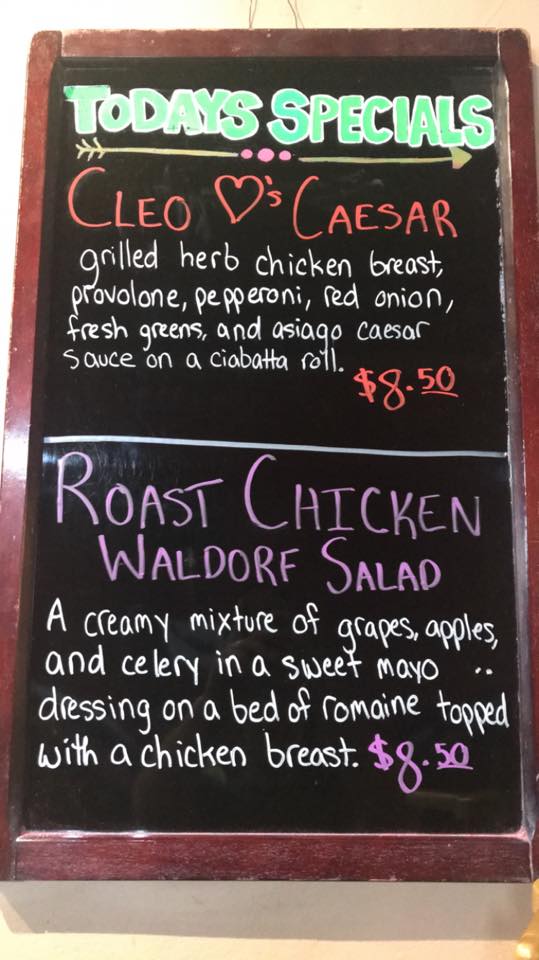 TODAYS SPECIALS
CLEO ♡'s CAESAR
grilled herb chicken breast,
provolone, pepperoni, red onion,
fresh greens, and asiago caesar
sauce on a ciabatta roll.
$8.50
ROAST CHICKEN
WALDORF SALAD
A creamy mixture of grapes, apples,
and celery in a sweet mayo ..
dressing on a bed of romaine topped
with a chicken breast. $8.50